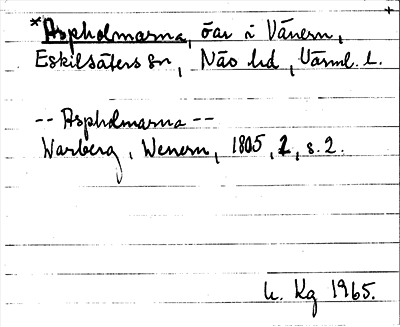 *Aspholmarna, öar i Vänern,
Eskilsäters sn, Näs hd, Värml. l.
-- Aspholmarna --
Warberg, Wenern, 1805, 1, s. 2.
h. Kg 1965.